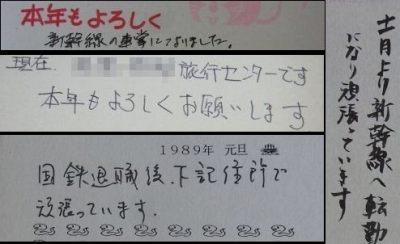 本年もよろしく
新幹線の車掌になりました。
現在
旅行センターです
本年もよろしくお願いします
1989年 元旦
国鉄退職後、下記住所で
頑張っています。
十一月より新幹線へ転勤
になり頑張っています